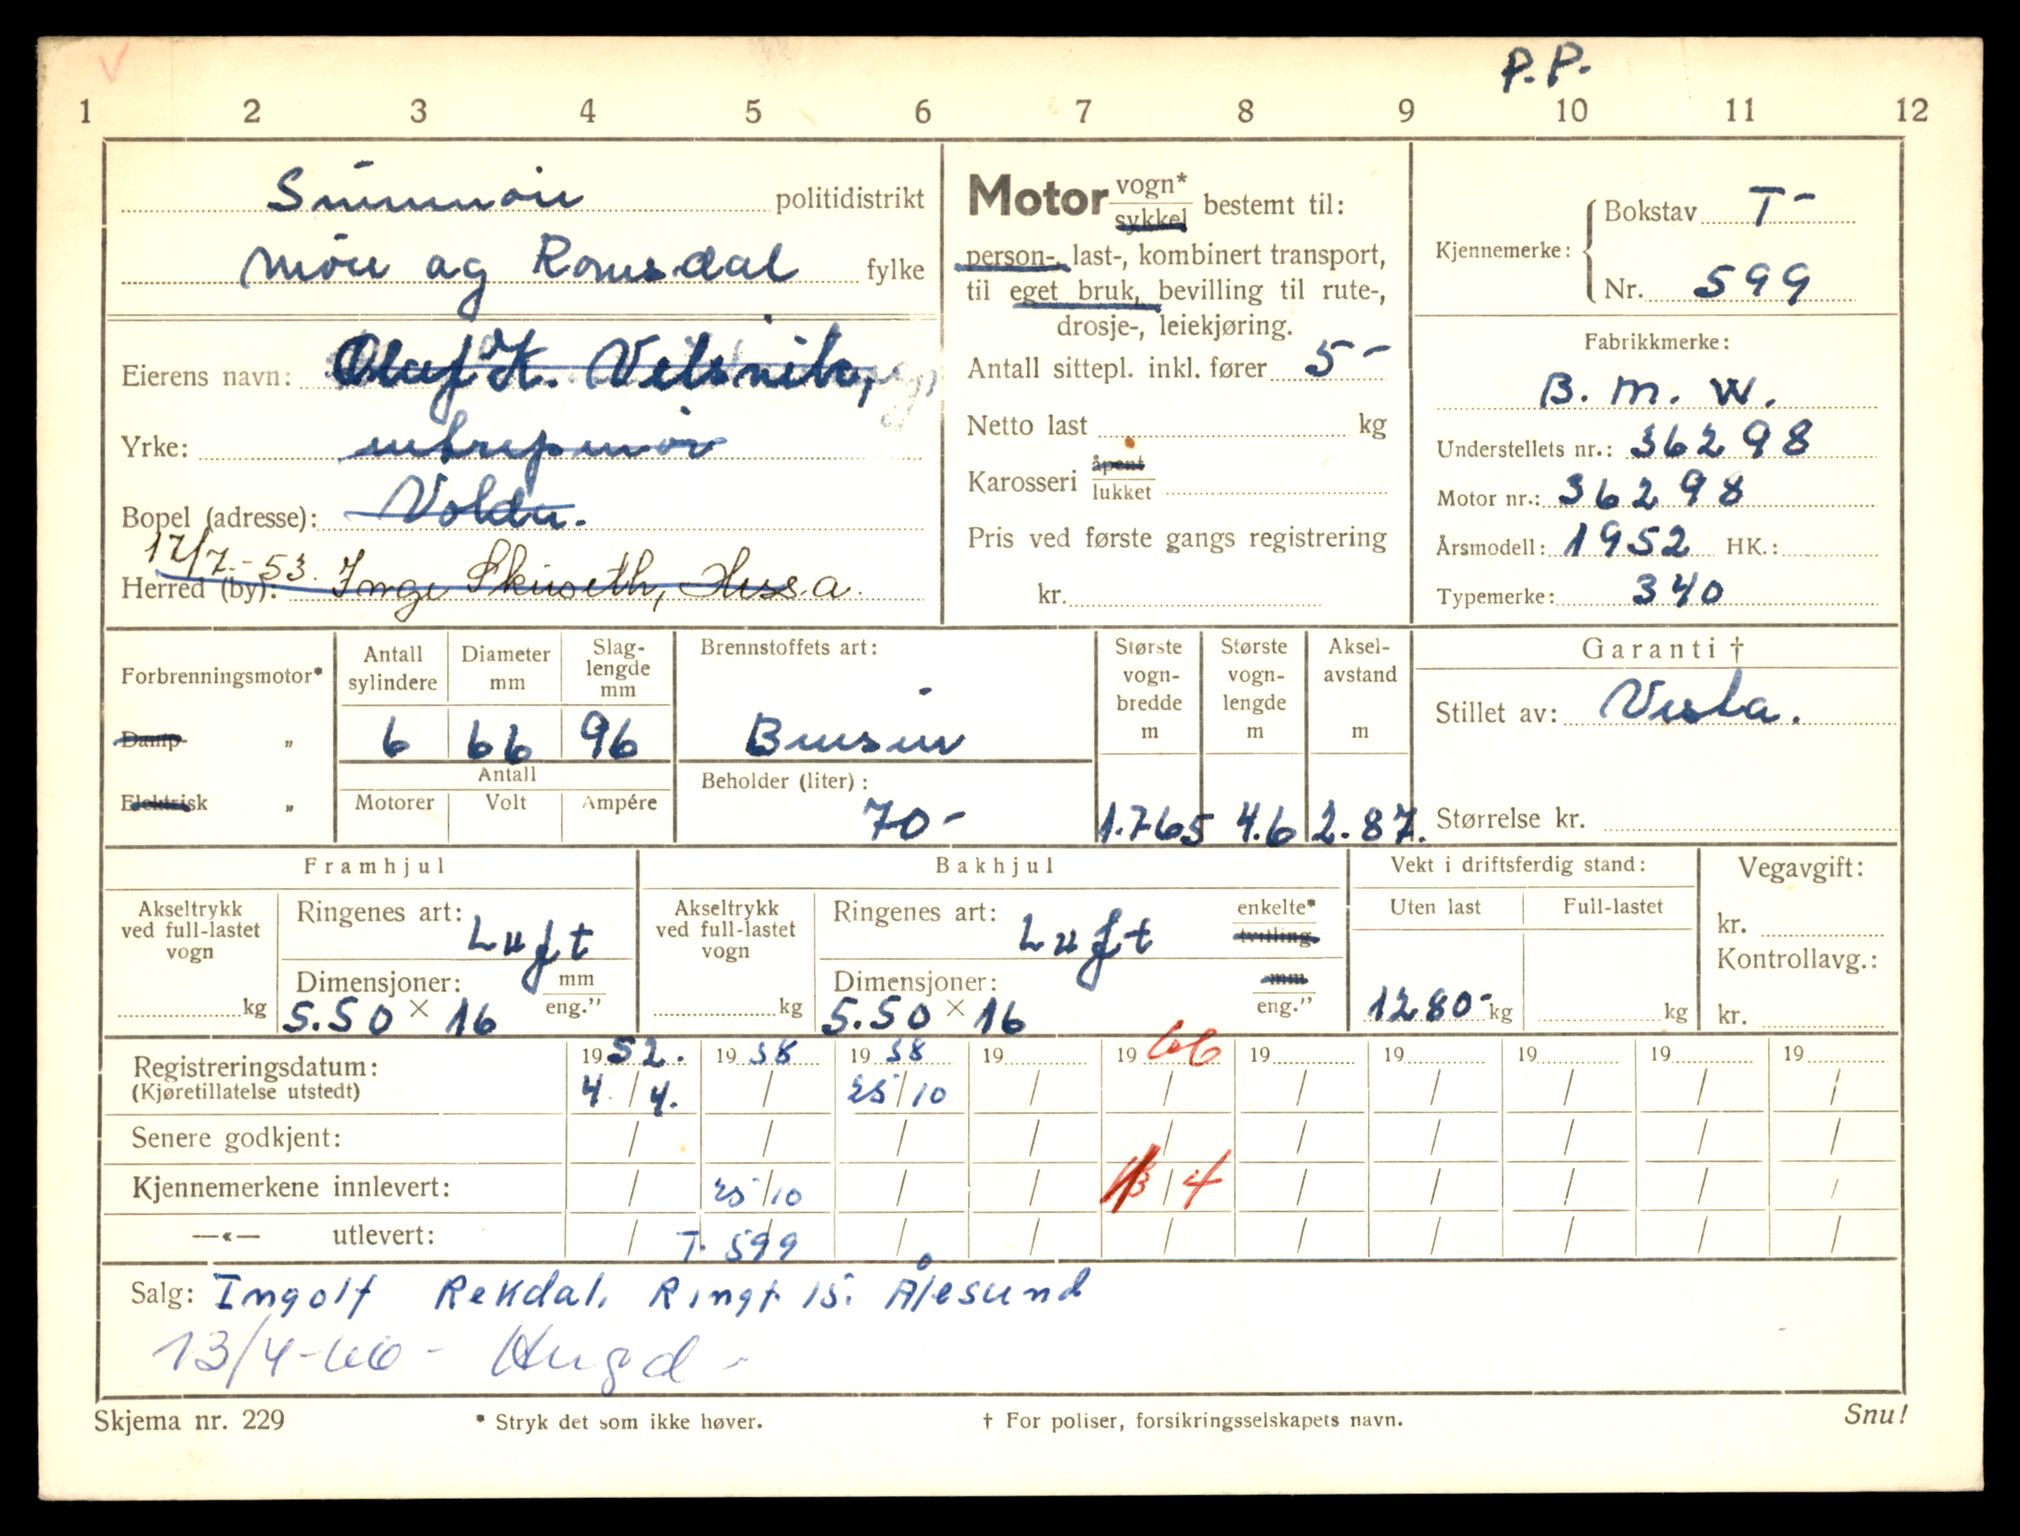 P.P.
1 2 3 4 5 6 7 8 9 10 11 12
Sunnmöre politidistrikt
Möre og Romsdal fylke
Eierens navn: Olaf K.
Yrke: entrepenör
Bopel (adresse): Volda.
17/7.-53. Inge Skuseth, Hessa.
Herred (by):
Motor vogn* sykkel bestemt til:
person-, last-, kombinert transport,
til eget bruk, bevilling til rute-,
drosje-, leiekjøring.
Antall sittepl. inkl. fører 5-
Netto last kg
Karosseri åpent lukket
Pris ved første gangs registrering
kr.
Kjennemerke: Bokstav T-
Nr. 599
Fabrikkmerke:
B. M. W.
Understellets nr.: 36298
Motor nr.: 36298
Årsmodell: 1952 HK.:
Typemerke: 340
Forbrenningsmotor*
Damp „
Elektrisk „
Antall sylindere 6
Diameter mm 66
Slaglengde mm 96
Antall
Motorer Volt Ampére
Brennstoffets art:
Bensin
Beholder (liter):
70-
Største vogn-bredde m 1.765
Største vogn-lengde m 4.6
Aksel-avstand m 2.87.
Garanti †
Stillet av: Vesta.
Størrelse kr.
Framhjul
Akseltrykk ved full-lastet vogn kg
Ringenes art: Luft
Dimensjoner: mm eng.”
5.50 × 16
Bakhjul
Akseltrykk ved full-lastet vogn kg
Ringenes art: Luft enkelte* tvilling
Dimensjoner: mm eng.”
5.50 × 16
Vekt i driftsferdig stand:
Uten last Full-lastet
1280- kg kg
Vegavgift:
kr.
Kontrollavg.:
kr.
Registreringsdatum: 1952. 1958 1958 19 1966 19 19 19 19 19
(Kjøretillatelse utstedt) 4/4. / 25/10 / / / / / / /
Senere godkjent: / / / / / / / / / /
Kjennemerkene innlevert: / 25/10 / / 13/4 / / / / /
—«— utlevert: / T. 599 / / / / / / / /
Salg: Ingolf Rekdal, Ringt. 15. Ålesund
13/4-66-
Skjema nr. 229
* Stryk det som ikke høver.
† For poliser, forsikringsselskapets navn.
Snu!